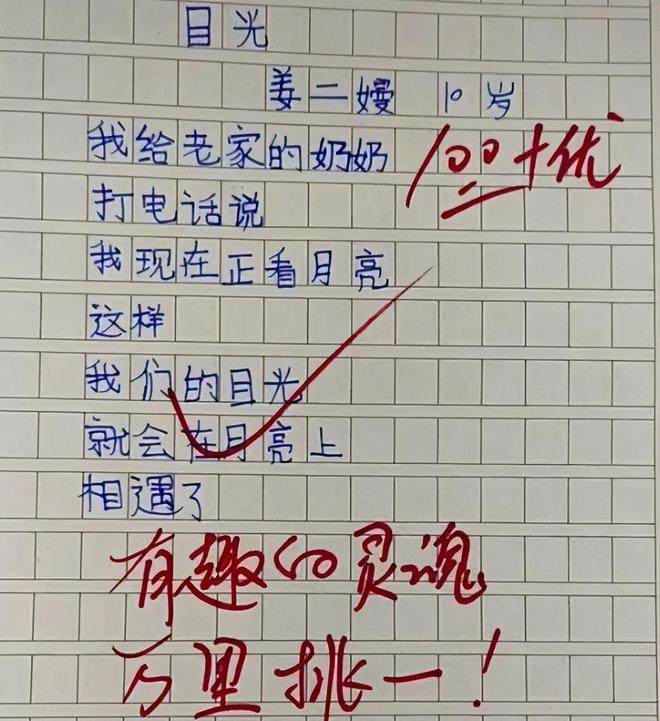 目光
姜二嫚 10岁
我给老家的奶奶
100+优
打电话说
我现在正看月亮
这样
我们的目光
就会在月亮上
相遇了
有趣的灵魂
万里挑一!